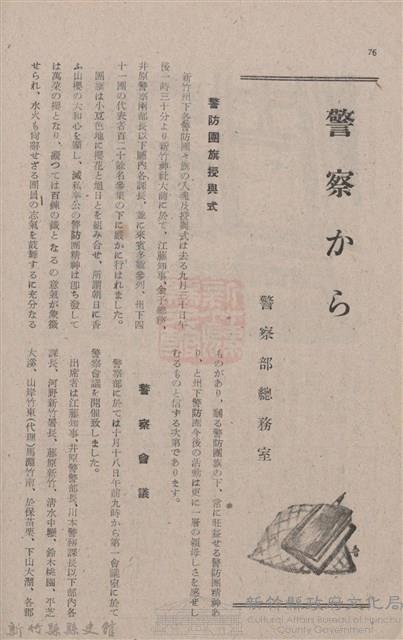 76
警察から
警察部總務室
警防團旗授與式
新竹州下各警防團々旗の入魂及授與式は去る九月三十日午
後一時三十分より新竹神社大前に於て、江藤知事、金子總務、
井原警察兩部長以下廳內各課長、並に來賓多數參列、州下四
十一團の代表者百二十餘名參集の下に嚴かに行はれました。
團旗は小豆色地に櫻花と旭日とを組み合せ、所謂朝日に香
ふ山櫻の大和心を顯し、滅私奉公の警防團精神は卽ち發して
は萬朶の櫻となり、凝つては百鍊の鐵となるの意氣が象徵
せられ、水火も何辭せざる團員の志氣を鼓舞するに充分なる
ものがあり、翩る警防團旗の下、常に旺盛せる警防團精神あ
り、と州下警防團今後の活動は更に一層の賴母しさを感ぜし
むるものと信する次第であります。
警察會議
警察部に於ては十月十八日午前九時から第一會議室に於て
警察會議を開催致しました。
出席者は江藤知事、井原警察部長、川本警務課長以下部內各
課長、河野新竹署長、藤原新竹、清水中壢、鈴木桃園、平芝
大溪、山岸竹東(代理)馬淵竹南、於保苗栗、下山大湖、各郡
新竹縣縣史館
新竹縣政府文化局
Cultural Affairs Bureau of Hsinchu
County Government